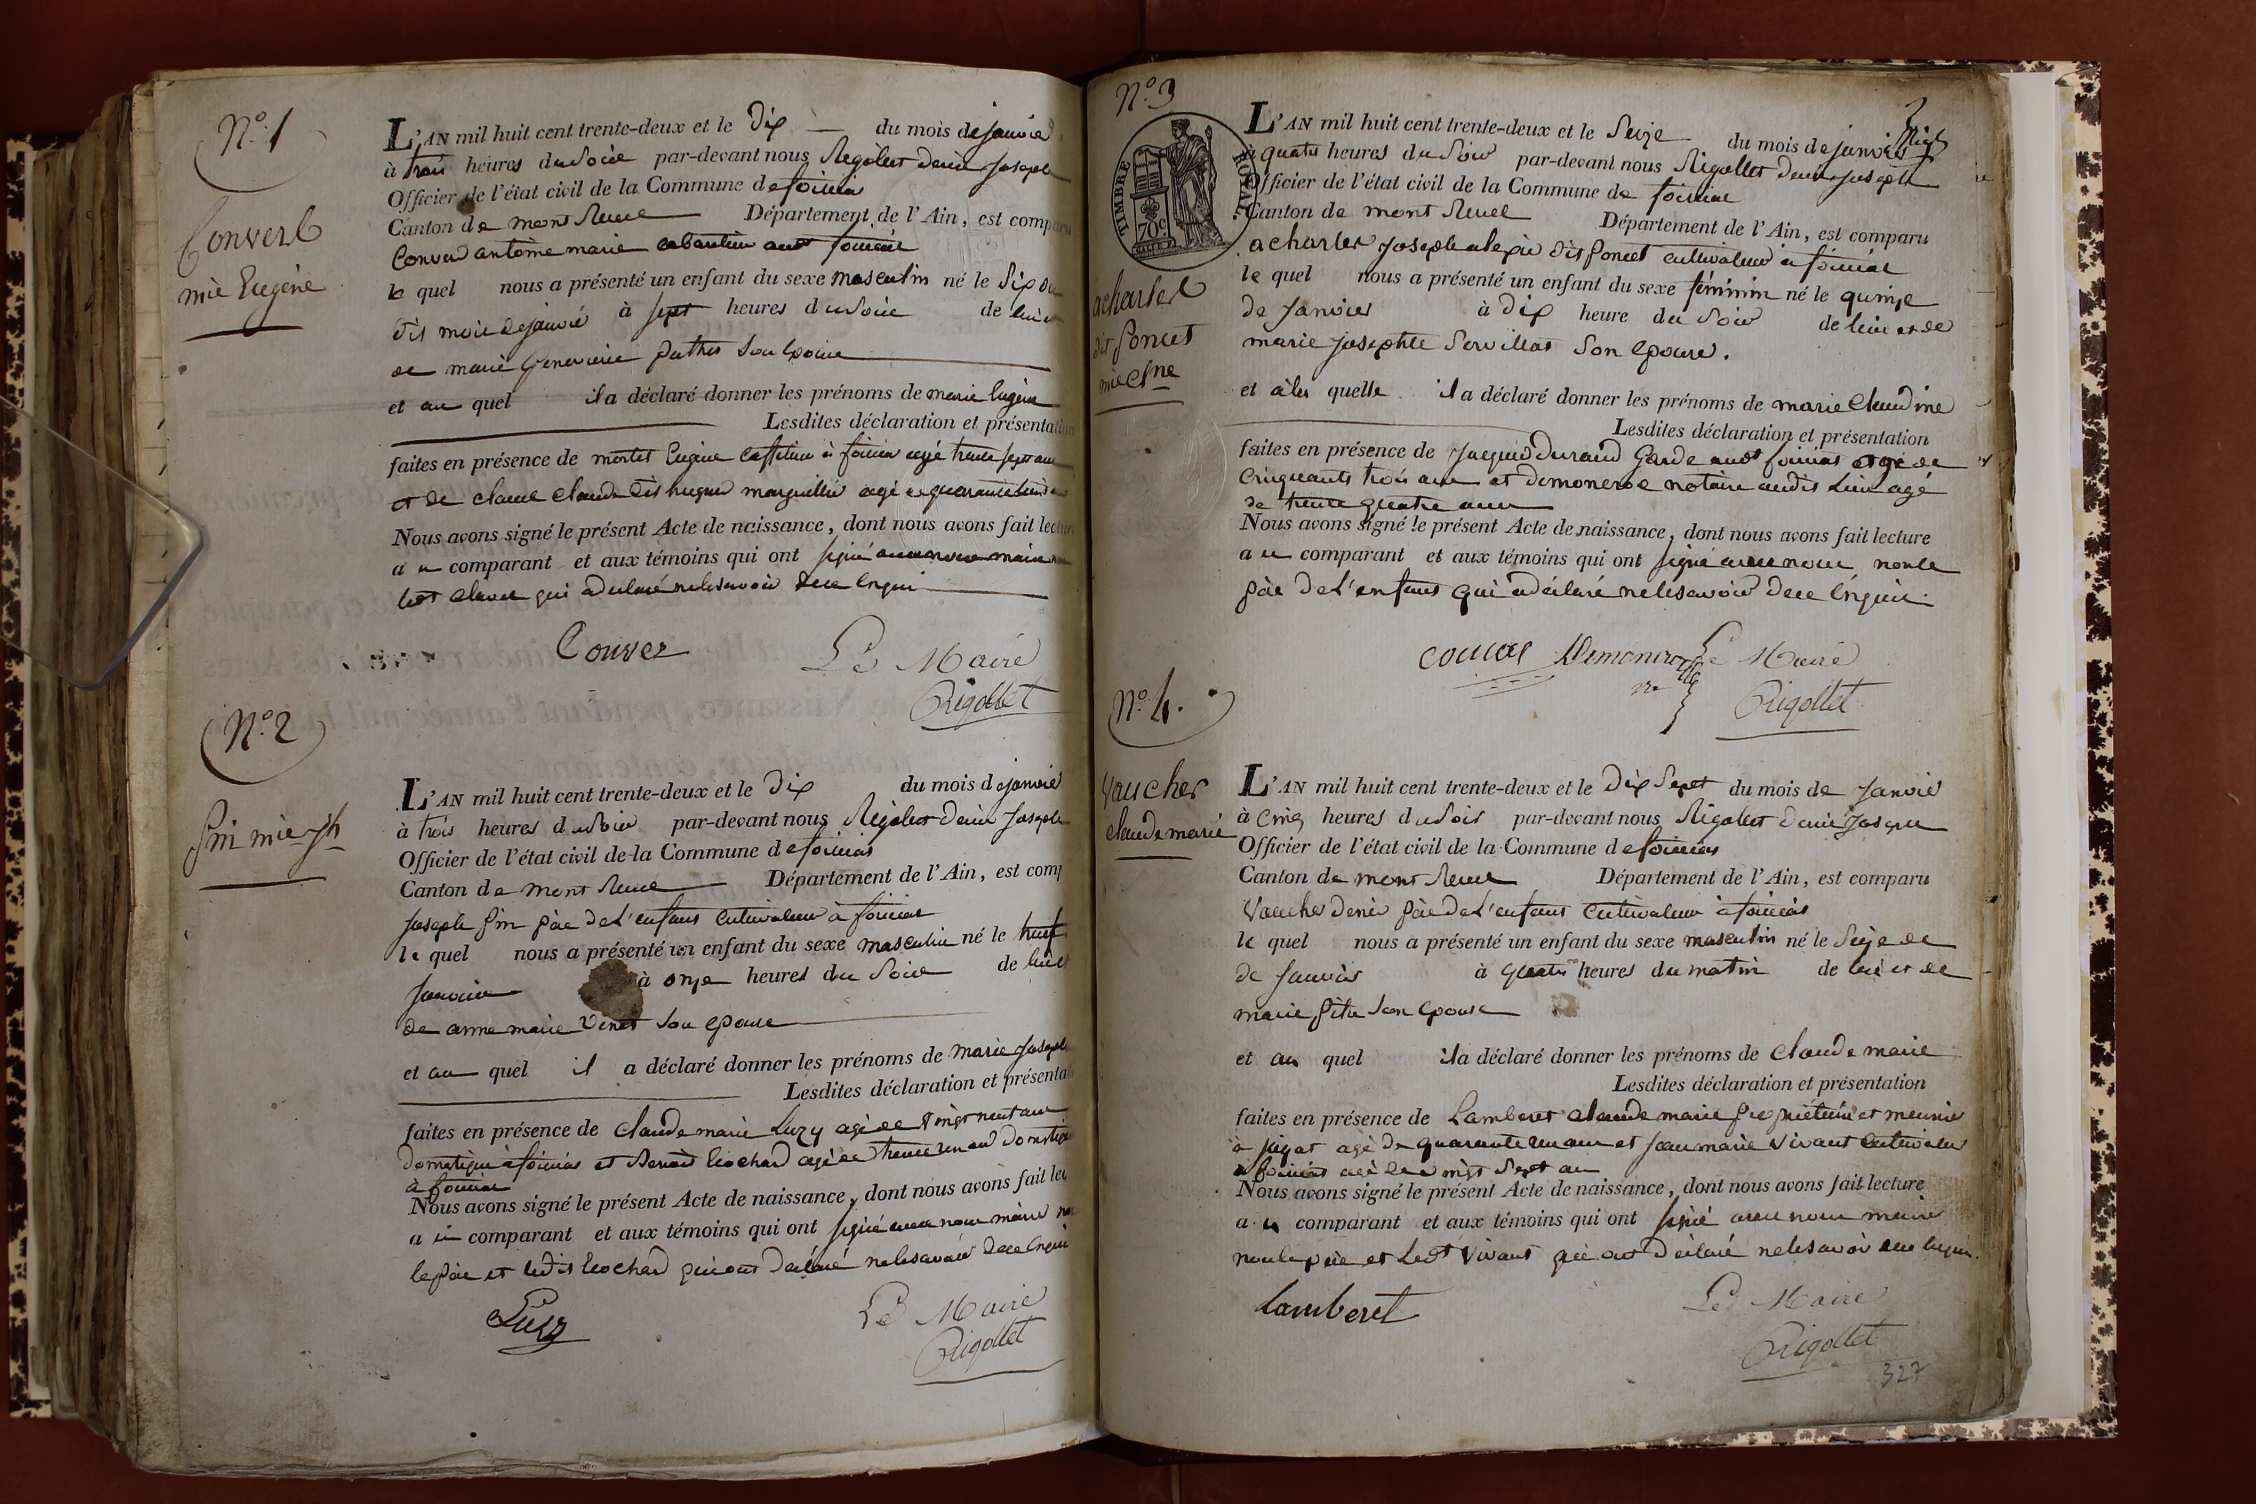 N.o 1
Convert
mie Eugène
L'AN mil huit cent trente-deux et le Dix du mois de janvier
à trois heures du Soire par-devant nous Rigollet Denis Joseph
Officier de l'état civil de la Commune de foissiat
Canton de mont Revel Département de l'Ain, est comparu
Conver antoine marie foissiat
le quel nous a présenté un enfant du sexe masculin né le Dix du
dis mois de janvié à sept heures du Soire de lui et
de marie Genevieve son Epouse
et au quel il a déclaré donner les prénoms de marie Eugène
Lesdites déclaration et présentation
faites en présence de Eugène à foissiat agé trente sept ans
et de claude dis marguillié agé de quarante
Nous avons signé le présent Acte de naissance, dont nous avons fait lecture
au comparant et aux témoins qui ont signé avec nous maire non
qui a déclaré ne le savoir de ce Enquis
Conver Le Maire
Rigollet
N.o 2
Pin mie jh
L'AN mil huit cent trente-deux et le Dix du mois de janvié
à trois heures du Soire par-devant nous Rigollet Denis Joseph
Officier de l'état civil de la Commune de foissiat
Canton de mont Revel Département de l'Ain, est comp
Joseph Pin père de L'enfant Cultivateur à foissiat
le quel nous a présenté un enfant du sexe masculin né le huit
Janvier à onze heures du Soire de lui et
de anne marie Venet son Epouse
et au quel il a déclaré donner les prénoms de marie Joseph
Lesdites déclaration et présentation
faites en présence de Claude marie Luzy agé de vingt neuf ans
Domestique à foissiat et Benoit agé de trente un ans Domestique
à foissiat
Nous avons signé le présent Acte de naissance, dont nous avons fait lec
au comparant et aux témoins qui ont signé avec nous maire non
le père et ledit qui ont Déclaré ne le savoir de ce Enquis
Luzy Le Maire
Rigollet
N.o 3
TIMBRE ROYAL.
70c.
acharles
dit Poncet
mie Clne
L'AN mil huit cent trente-deux et le Seize du mois de janvier
à quatre heures du Soir par-devant nous Rigollet Denis Joseph
Officier de l'état civil de la Commune de foissiat
Canton de mont Revel Département de l'Ain, est comparu
acharles Joseph alexis dis Poncet cultivateur à foissiat
le quel nous a présenté un enfant du sexe féminin né le quinze
de Janvier à Dix heure du Soir de lui et de
marie Josephte Servillat Son Epouse.
et à la quelle il a déclaré donner les prénoms de marie Claudine
Lesdites déclaration et présentation
faites en présence de Jacques Durand Garde audt foissiat agé de
Cinquante trois ans et notaire audit Lieu agé
de trente quatre ans
Nous avons signé le présent Acte de naissance, dont nous avons fait lecture
au comparant et aux témoins qui ont signé avec nous non le
père de L'enfant qui a déclaré ne le savoir de ce Enquis.
Le Maire
Rigollet
N.o 4.
Vaucher
claude marie
L'AN mil huit cent trente-deux et le Dix Sept du mois de Janvié
à Cinq heures du Soir par-devant nous Rigollet Denis Joseph
Officier de l'état civil de la Commune de foissiat
Canton de mont Revel Département de l'Ain, est comparu
Vaucher Denis père de L'enfant Cultivateur à foissiat
le quel nous a présenté un enfant du sexe masculin né le Seize de
de Janvier à quatre heures du matin de lui et de
marie Son Epouse
et au quel il a déclaré donner les prénoms de Claude marie
Lesdites déclaration et présentation
faites en présence de Lamberet Claude marie propriétaire et meunier
à agé de quarante un ans et Jean marie Vivant Cultivateur
à foissiat agé de vingt Sept ans
Nous avons signé le présent Acte de naissance, dont nous avons fait lecture
au comparant et aux témoins qui ont signé avec nous maire
non le père et ledt Vivant qui ont Déclaré ne le savoir de ce Enquis.
Lamberet Le Maire
Rigollet
327